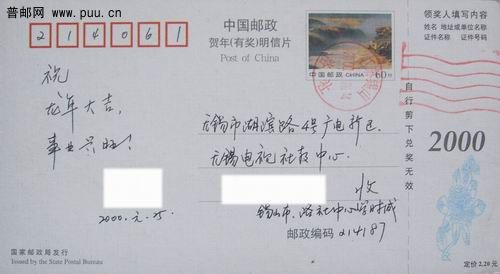 普邮网 www.puu.cn
中国邮政
贺年(有奖)明信片
Post of China
2 1 4 0 6 1
中国邮政 CHINA 60分
领奖人填写内容
姓名 地址或单位名称
证件名称 证件号码
自行剪下兑奖无效
2000
祝
龙年大吉,
事业兴旺!
2000.元.25.
无锡市湖滨路4号广电新区
无锡电视社教中心
收
锡山市、洛社中心学
邮政编码 214187
国家邮政局发行
Issued by the State Postal Bureau
定价 2.20元